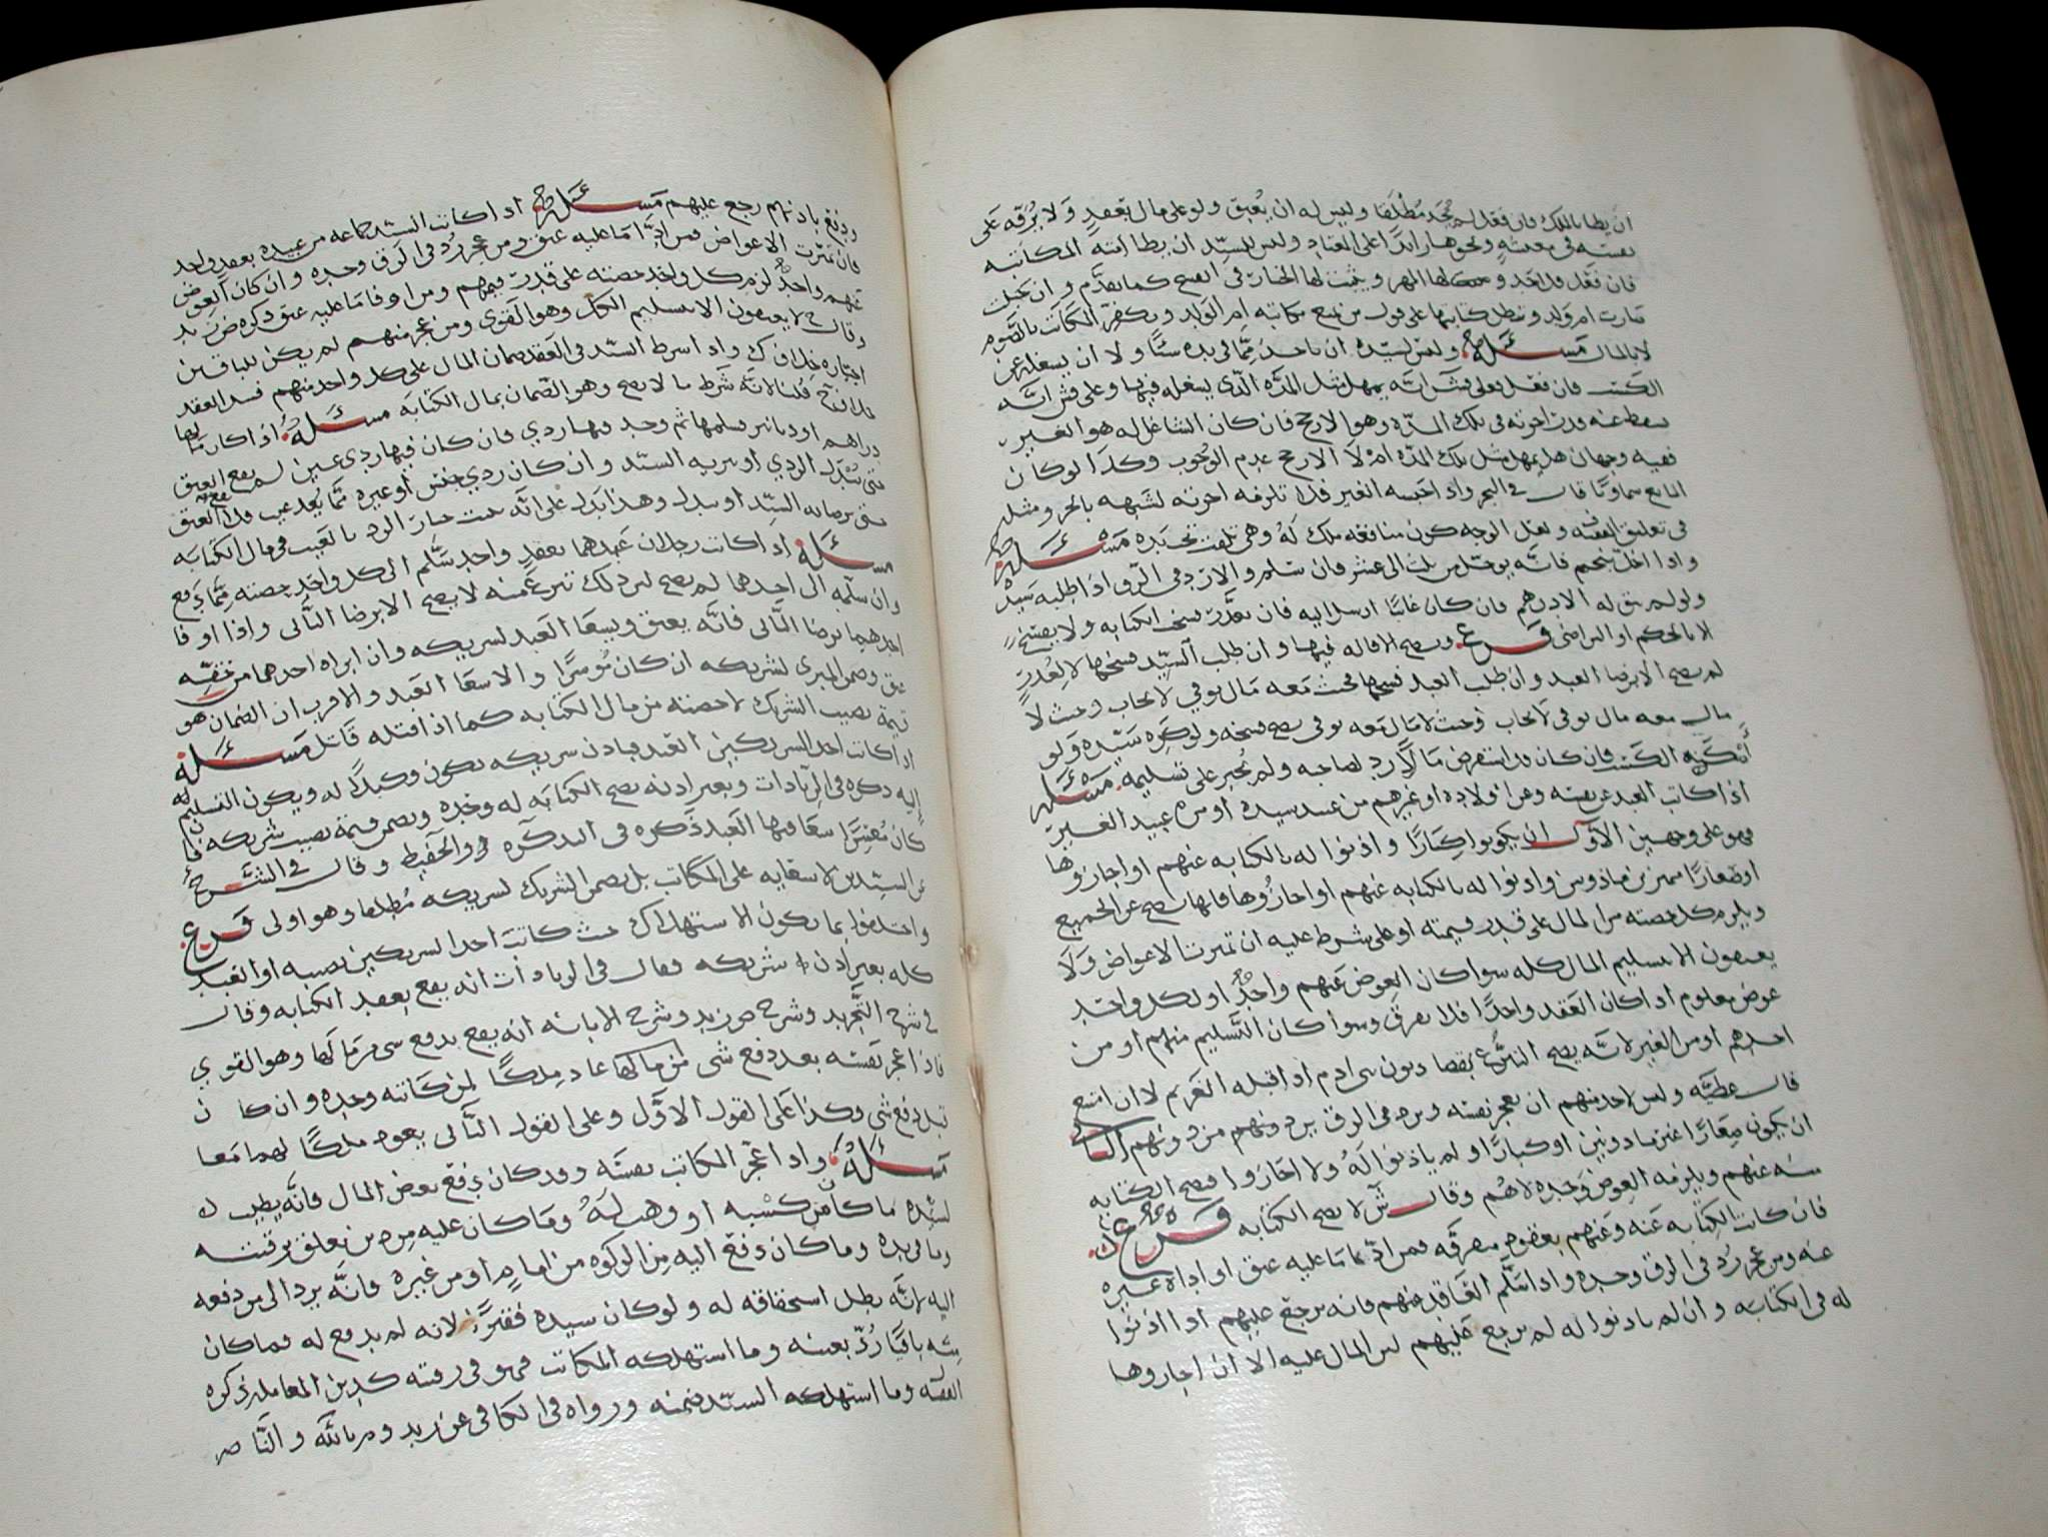 ان يطا بالملك فان فعل لم يحد مطلقا وليس له ان يعتق ولو على مال بعقد ولا نفقه على
نفسه في معيشه ونحوها زايدا على المعتاد وليس للسيد ان يطا امته المكاتبه
فان فعل فلا حد و لها المهر ويثبت لها الخيار في الفسخ كما تقدم وان حبلت
صارت ام ولد وتبطل كتابتها على قول من منع مكاتبه ام الولد ويكفر المكاتب بالصوم
لا بالمال مسئلة وليس لسيده ان ياخذ مما في يده شيئا ولا ان يشغله عن
الكسب فان فعل فعلى ش انه يمهل مثل المده الذي يشغله فيها وعلى قش انه
يسقط عنه قدر اجرته في تلك المده وهو الارجح فان كان الشاغل له هو الغير
ففيه وجهان هل يمهل مثل تلك المده ام لا الارجح عدم الوجوب وكذا لو كان
المانع سماويا قال في البحر واذا حبسه الغير فلا تلزمه اجرته لشبهه بالحر ومثله
في تعليق الفقيه ولعل الوجه كون منافعه ملك له وهي تلفت تحت يده مسئلة
واذا اخل بنجم فانه يوجل من ثلث الى عشر فان سلم والا رد في الرق اذا طلبه سيده
ولو لم يبق له الا درهم فان كان غايبا ارسل اليه فان تعذر فسخ الكتابه ولا يفسخ
الا بالحكم او التراضي فرع وتصح الاقاله فيها وان طلب السيد فسخها لا لعذر
لم يصح الا برضا العبد وان طلب العبد فسخها فحيث معه مال يوفي لا يجاب وحيث لا
مال معه مال يوفي لا يجاب وحيث لا مال معه يوفي يصح فسخه ولو كره سيده ولو
امكنه الكسب فان كان قد استقرض مالا رد لصاحبه ولم يجبر على تسليمه مسئلة
اذا كاتب العبد عن نفسه وعن اولاده او غيرهم من عبيد سيده او من عبيد الغير
فهو على وجهين الاول ان يكونوا كبارا واذنوا له بالكتابه عنهم او اجازوها
او صغارا مميزين ماذونين واذنوا له بالكتابه عنهم او اجازوها فانها تصح عن الجميع
ويلزم كل حصته من المال على قدر قيمته او على شرط عليه ان تميزت الاعواض ولا
يعتقون الا بتسليم المال كله سوا كان العوض عنهم واحد او لكل واحد
عوض معلوم اذا كان العقد واحدا فلا يفرق وسوا كان التسليم منهم او من
احدهم او من الغير لانه يصح التبرع بقضا ديون بني ادم اذا قبله الغريم لا ان امتنع
قال عطيه وليس لاحد منهم ان يعجز نفسه ويرد في الرق يرد ونهم من دونهم الثاني
ان يكون صغارا غير ماذونين او كبارا ولم ياذنوا له ولا اجازوا فتصح الكتابه
منه عنهم ويلزمه العوض وحده لا هم وقال ش لا تصح الكتابه فرع
فان كانت الكتابه عنه وعنهم بعقود متفرقه فمن ادى ما عليه عتق او اداه غيره
عنه ومن عجز رد في الرق وحده واذا سلم العاقد عنهم فانه يرجع عليهم اذا اذنوا
له في الكتابه وان لم ياذنوا له لم يرجع عليهم لان المال عليه الا ان اجازوها
ودفع باذنهم رجع عليهم مسئلة اذا كاتب السيد جماعه من عبيده بعقد واحد
فان تميزت الاعواض فمن ادى ما عليه عتق ومن عجز رد في الرق وحده وان كان العوض
عنهم واحد لزم كل واحد حصته على قدر قيمهم ومن اوفا ما عليه عتق ذكره ض زيد
وقال لا يعتقون الا بتسليم الكل وهو القوي ومن عجز منهم لم يكن للباقين
اجباره خلاف ك واذا شرط السيد في العقد ضمان المال على كل واحد منهم فسد العقد
خلاف ح قلنا لانه شرط ما لا يصح وهو الضمان بمال الكتابه مسئلة اذا كان مالها
دراهم او دنانير فسلمها ثم وجد فيها ردي فان كان فيها ردي عين لم يقع العتق
حتى يبدل الردي او يبريه السيد وان كان ردي جنس او غيره مما يعد عيب فلا يقع العتق
حتى يرضا به السيد او يبدل وهذا يدل على انه يثبت خيار الرد بالعيب في مال الكتابه
مسئلة اذا كاتب رجلان عبدهما بعقد واحد سلم الى كل واحد حصته مما دفع
وان سلمه الى احدهما لم يصح لان ذلك تبرع منه لا يصح الا برضا الثاني واذا اوفا
احدهما برضا الثاني فانه يعتق ويسعا العبد لشريكه وان ابراه احدهما من حقه
عتق وضمن المبري لشريكه ان كان موسرا والا سعا العبد والاقرب ان الضمان هو
قيمة نصيب الشريك لا حصته من مال الكتابه كما اذا قتله قاتل مسئلة
اذا كاتب احد الشريكين العبد باذن شريكه يكون وكيلا له ويكون التسليم
اليه ذكره في الزيادات وبغير اذنه تصح الكتابه له وحده ويضمن قيمة نصيب شريكه فان
كان معسرا سعا فيها العبد ذكره في التذكره والحفيظ وقال في الشرح
عن السيدين لا سعايه على المكاتب بل يضمن الشريك لشريكه مطلقا وهو اولى فرع
واختلفوا بما يكون الاستهلاك حيث كاتب احد الشريكين نصيبه او العبد
كله بغير اذن شريكه فقال في الزيادات انه يقع بعقد الكتابه وقال
في شرح التجريد وشرح ض زيد وشرح الابانه انه يقع بدفع شي من مالها وهو القوي
فاذا عجز نفسه بعد دفع شي من مالها عاد ملكا لمن كاتبه وحده وان كان
قبل دفع شي وكذا على القول الاول وعلى القول الثاني يعود ملكا لهما معا
مسئلة واذا عجز المكاتب نفسه وقد كان دفع بعض المال فانه يطيب له
لسيده ما كان من كسبه او وهب له وما كان عليه من دين تعلق برقبته
وما في يده وما كان دفع اليه من الزكوه من امام او من غيره فانه يرد الى من دفعه
اليه لانه بطل استحقاقه له ولو كان سيده فقيرا لانه لم يدفع له فما كان
منه باقيا رد بعينه وما استهلكه المكاتب فهو في رقبته كدين المعامله ذكره
الفقيه وما استهلكه السيد ضمنه ورواه في الكافي عن زيد وم بالله والناصر